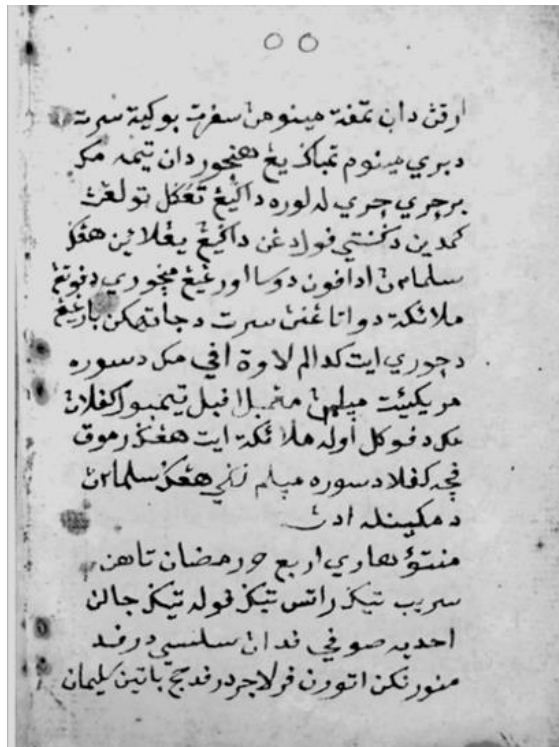 ارقن دان تمفة مينومن سفرت بوكية سرت
دبري مينوم تمباݢ يڠ هنچور دان تيمه مك
برچري چري له لوره داݢيڠ تڠكل تولڠڽ
كمدين دݢنتي فول دڠن داݢيڠ يڠ لائين هڠݢ
سلماڽ ادافون دوسا اورڠ يڠ منچوري دفوتڠ
ملائكة دوا تاڠنڽ سرت دجاتهكن بارڠ يڠ
دچوري ايت كدالم لاوة افي مك دسوره
مريكئيت ميلم مڠمبل افبيل تيمبول كفلاڽ
مك دفوكل اوله ملائكة ايت هڠݢ رموق
فچه كفلا دسوره ميلم لاݢي هڠݢ سلماڽ
دمكينله ادڽ
هاري اربع رمضان تاهن
سريب تيݢ راتس تيݢ فوله تيݢ جالن
احمديه صوفي سلسي درفد
منورنكن اتورن درفد حج باتين سليمان